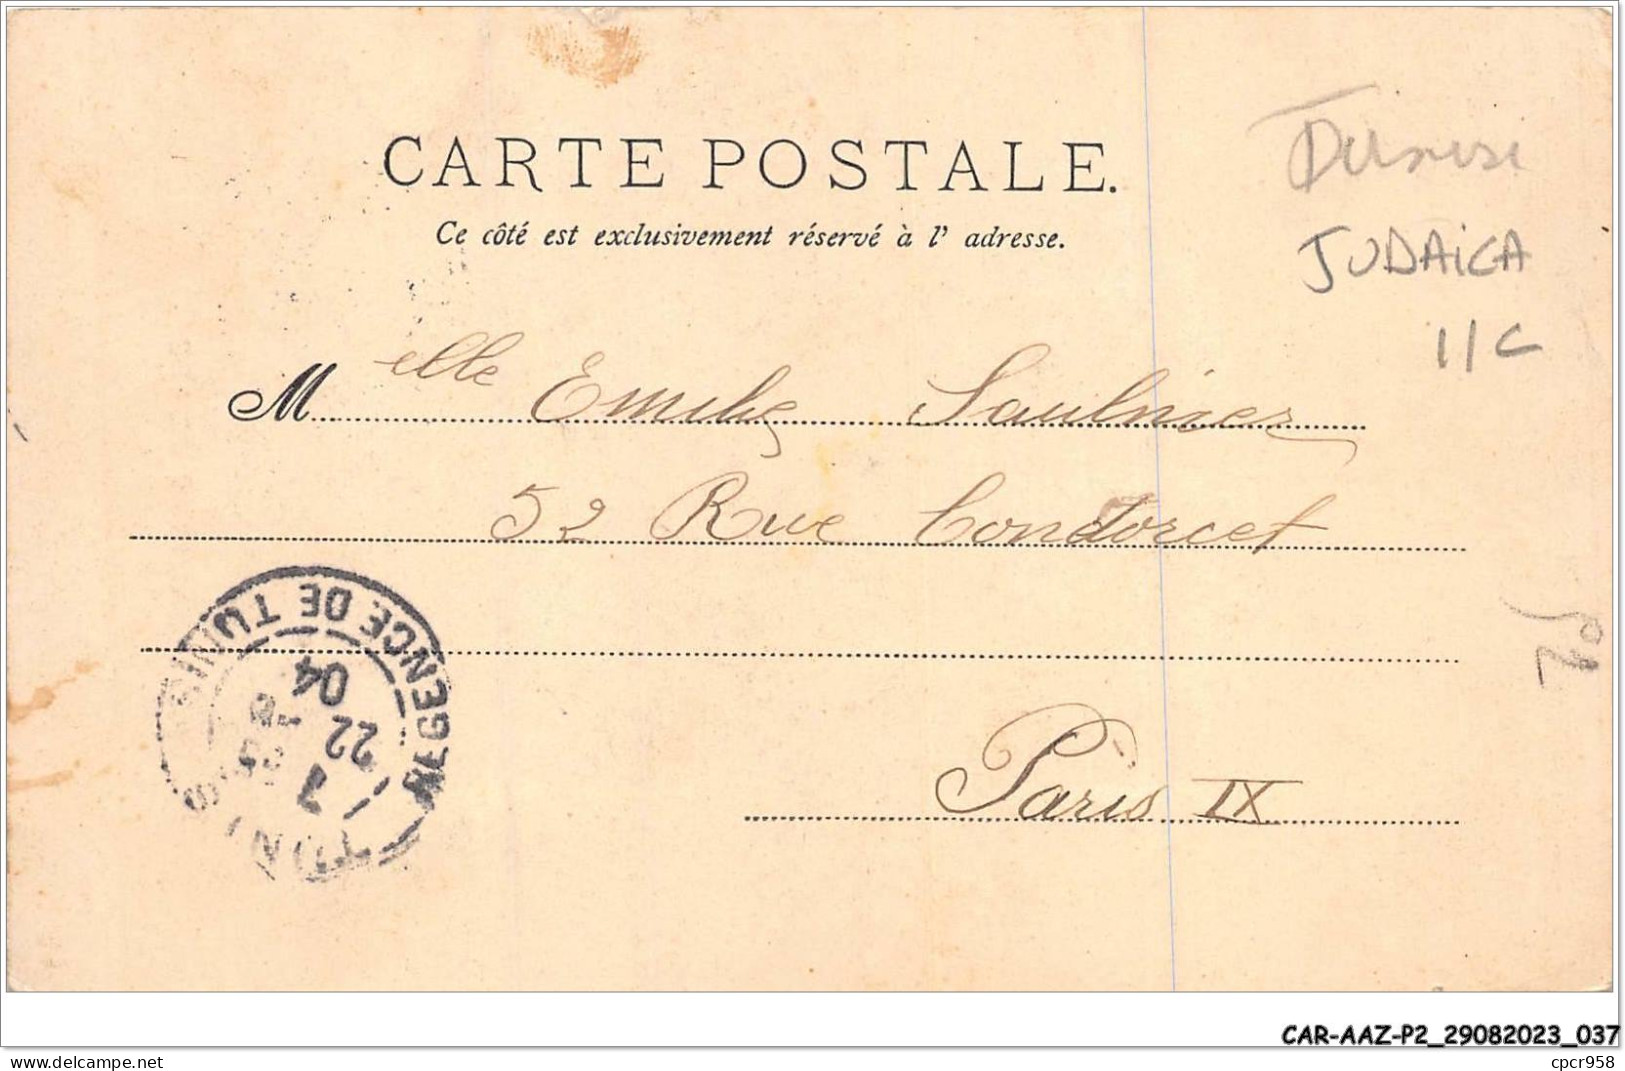 CARTE POSTALE.
Ce côté est exclusivement réservé à l' adresse.
Tunisi
JUDAICA
1/C
Melle Emilie Saulnier
52 Rue Condorcet
Paris IX
REGENCE DE TUNIS
TUNIS
22
04
P2
CAR-AAZ-P2_29082023_037
www.delcampe.net
cpcr958